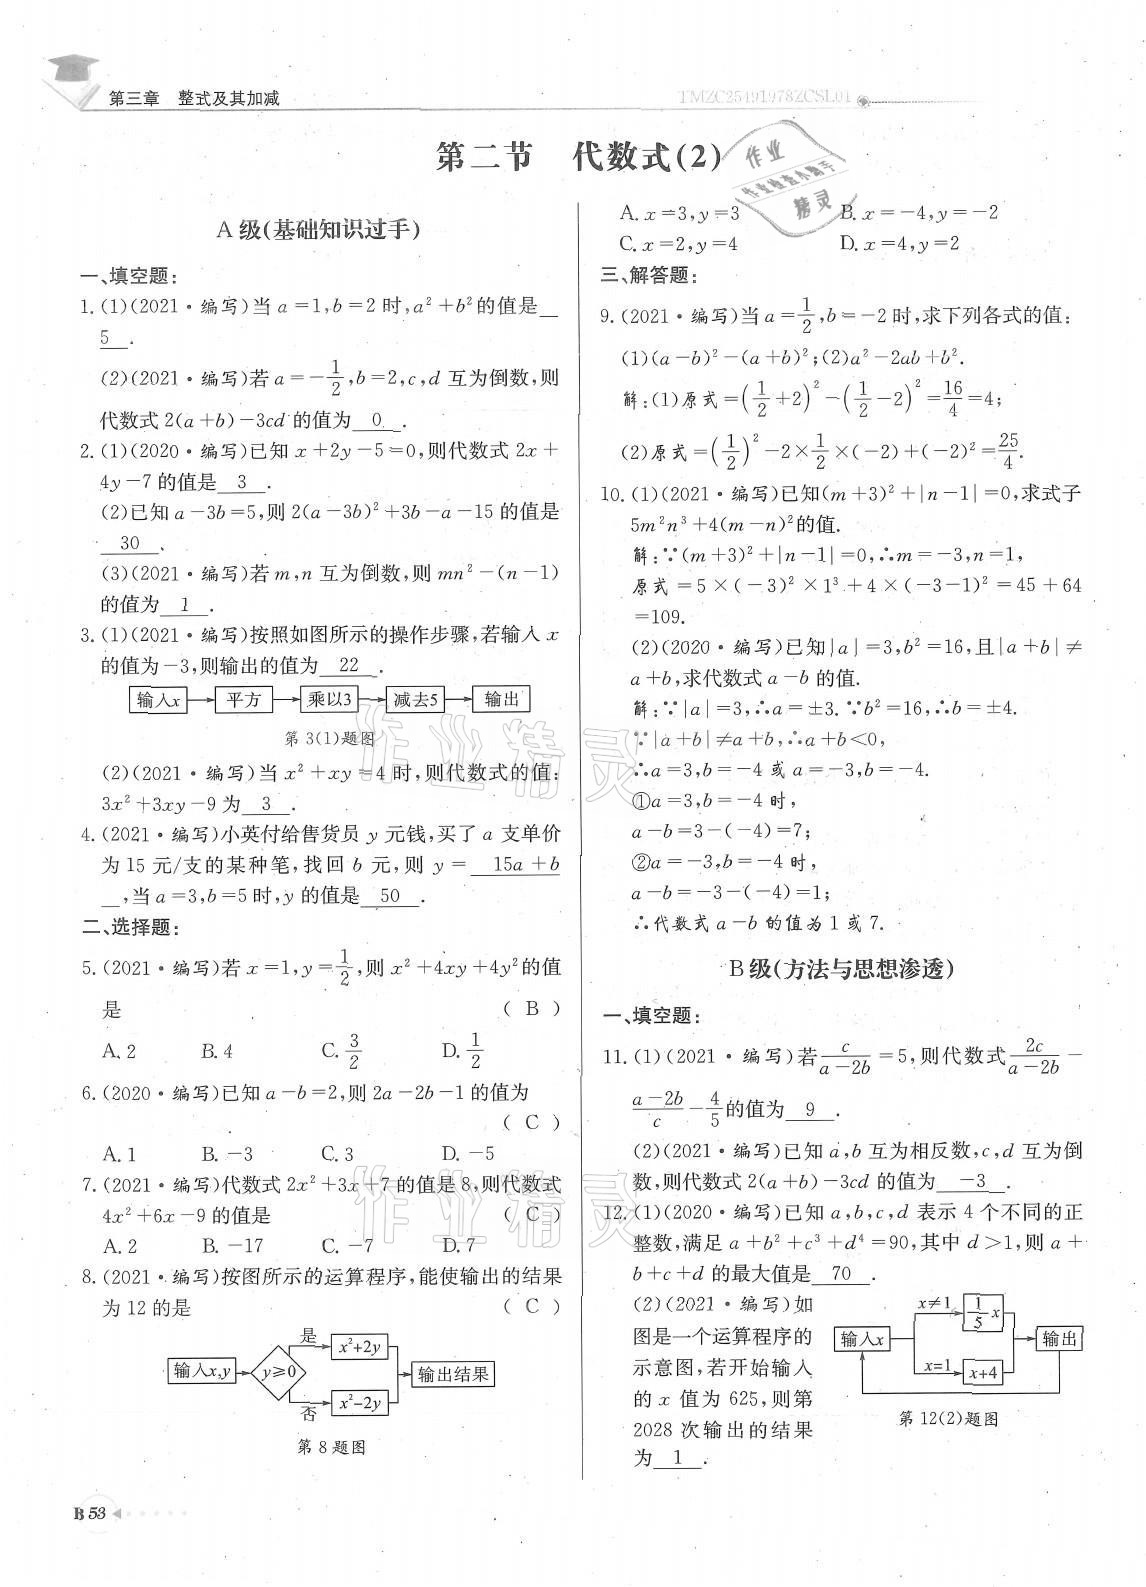 第三章 整式及其加减
TMZC25491978ZCSL01
第二节 代数式(2)
A级(基础知识过手)
一、填空题:
1.(1)(2021·编写)当a=1,b=2时,a²+b²的值是
5.
(2)(2021·编写)若a=-1/2,b=2,c,d互为倒数,则
代数式2(a+b)-3cd的值为 0 .
2.(1)(2020·编写)已知x+2y-5=0,则代数式2x+
4y-7的值是 3 .
(2)已知a-3b=5,则2(a-3b)²+3b-a-15的值是
30 .
(3)(2021·编写)若m,n互为倒数,则mn²-(n-1)
的值为 1 .
3.(1)(2021·编写)按照如图所示的操作步骤,若输入x
的值为-3,则输出的值为 22 .
输入x 平方 乘以3 减去5 输出
第3(1)题图
(2)(2021·编写)当x²+xy=4时,则代数式的值:
3x²+3xy-9为 3 .
4.(2021·编写)小英付给售货员y元钱,买了a支单价
为15元/支的某种笔,找回b元,则y= 15a+b
,当a=3,b=5时,y的值是 50 .
二、选择题:
5.(2021·编写)若x=1,y=1/2,则x²+4xy+4y²的值
是 ( B )
A.2 B.4 C.3/2 D.1/2
6.(2020·编写)已知a-b=2,则2a-2b-1的值为
( C )
A.1 B.-3 C.3 D.-5
7.(2021·编写)代数式2x²+3x+7的值是8,则代数式
4x²+6x-9的值是 ( C )
A.2 B.-17 C.-7 D.7
8.(2021·编写)按图所示的运算程序,能使输出的结果
为12的是 ( C )
输入x,y y≥0 是 x²+2y 否 x²-2y 输出结果
第8题图
B 53
A.x=3,y=3 B.x=-4,y=-2
C.x=2,y=4 D.x=4,y=2
三、解答题:
9.(2021·编写)当a=1/2,b=-2时,求下列各式的值:
(1)(a-b)²-(a+b)²;(2)a²-2ab+b².
解:(1)原式=(1/2+2)²-(1/2-2)²=16/4=4;
(2)原式=(1/2)²-2×1/2×(-2)+(-2)²=25/4.
10.(1)(2021·编写)已知(m+3)²+|n-1|=0,求式子
5m²n³+4(m-n)²的值.
解:∵(m+3)²+|n-1|=0,∴m=-3,n=1,
原式=5×(-3)²×1³+4×(-3-1)²=45+64
=109.
(2)(2020·编写)已知|a|=3,b²=16,且|a+b|≠
a+b,求代数式a-b的值.
解:∵|a|=3,∴a=±3.∵b²=16,∴b=±4.
∵|a+b|≠a+b,∴a+b<0,
∴a=3,b=-4或a=-3,b=-4.
①a=3,b=-4时,
a-b=3-(-4)=7;
②a=-3,b=-4时,
a-b=-3-(-4)=1;
∴代数式a-b的值为1或7.
B级(方法与思想渗透)
一、填空题:
11.(1)(2021·编写)若c/(a-2b)=5,则代数式2c/(a-2b)-
(a-2b)/c-4/5的值为 9 .
(2)(2021·编写)已知a,b互为相反数,c,d互为倒
数,则代数式2(a+b)-3cd的值为 -3 .
12.(1)(2020·编写)已知a,b,c,d表示4个不同的正
整数,满足a+b²+c³+d⁴=90,其中d>1,则a+
b+c+d的最大值是 70 .
(2)(2021·编写)如
图是一个运算程序的
示意图,若开始输入
的x值为625,则第
2028次输出的结果
为 1 .
输入x x≠1 1/5x x=1 x+4 输出
第12(2)题图
作业
作业检查小助手
精灵
作业精灵
作业精灵